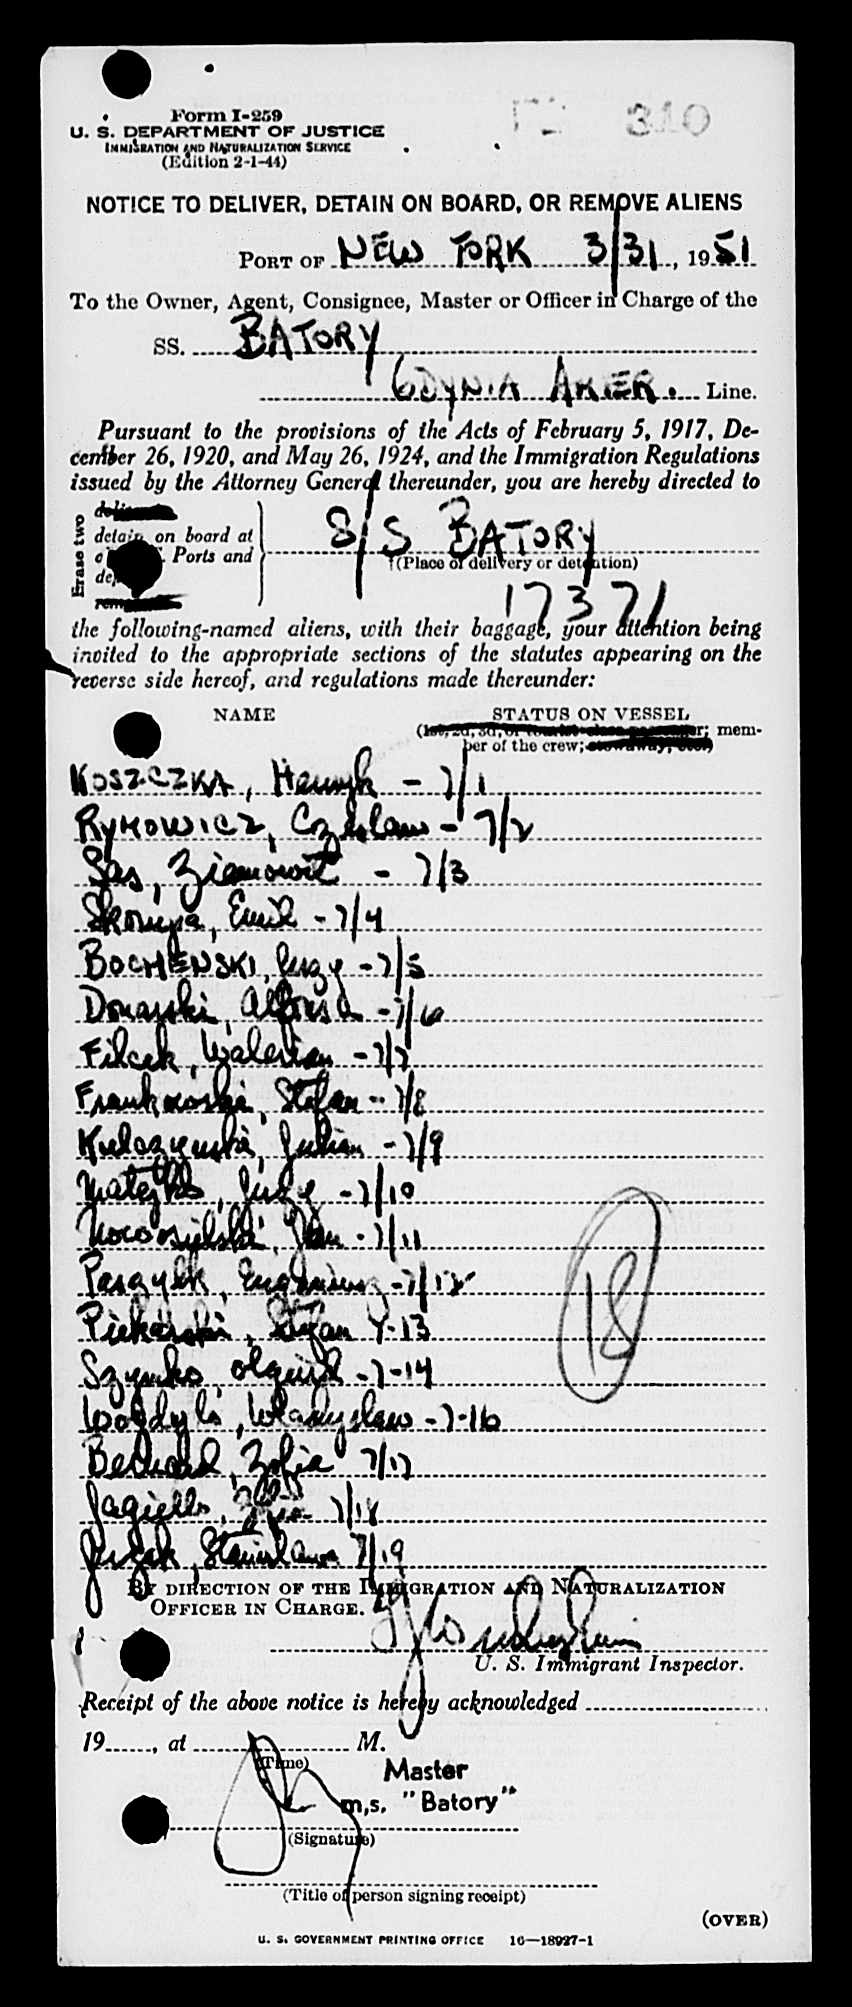 Form I-259
310
U. S. DEPARTMENT OF JUSTICE
IMMIGRATION AND NATURALIZATION SERVICE
(Edition 2-1-44)
NOTICE TO DELIVER, DETAIN ON BOARD, OR REMOVE ALIENS
PORT OF NEW YORK 3/31, 1951
To the Owner, Agent, Consignee, Master or Officer in Charge of the
SS. BATORY
GDYNIA AMER. Line.
Pursuant to the provisions of the Acts of February 5, 1917, De-
cember 26, 1920, and May 26, 1924, and the Immigration Regulations
issued by the Attorney General thereunder, you are hereby directed to
Erase two
detain on board at
Ports and
S/S BATORY
(Place of delivery or detention)
17371
the following-named aliens, with their baggage, your attention being
invited to the appropriate sections of the statutes appearing on the
reverse side hereof, and regulations made thereunder:
NAME STATUS ON VESSEL
(1st, 2d, 3d, or tourist-class passenger; mem-
ber of the crew; stowaway, etc.)
KOSZCZKA, Henryk - 7/1
RYMOWICZ, Czeslaw - 7/2
Sas, Ziemowit - 7/3
Skorupa, Emil - 7/4
BOCHENSKI, Jerzy - 7/5
Donarski, Alfons - 7/6
Filcek, Walerian - 7/7
Frankowski, Stefan - 7/8
Kulczynski, Julian - 7/9
Matejko, Jerzy - 7/10
Jan - 7/11
Eugeniusz - 7/12
Piekarski, Stefan 7-13
Szymko, Olgierd - 7-14
Wladyslaw - 7-16
Bednard, Zofia 7/17
Jagiello, Zofia 7/18
Stanislawa 7/19
18
BY DIRECTION OF THE IMMIGRATION AND NATURALIZATION
OFFICER IN CHARGE.
U. S. Immigrant Inspector.
Receipt of the above notice is hereby acknowledged
19, at M.
(Time)
Master
m,s. "Batory"
(Signature)
(Title of person signing receipt)
(OVER)
U. S. GOVERNMENT PRINTING OFFICE 16—18927-1